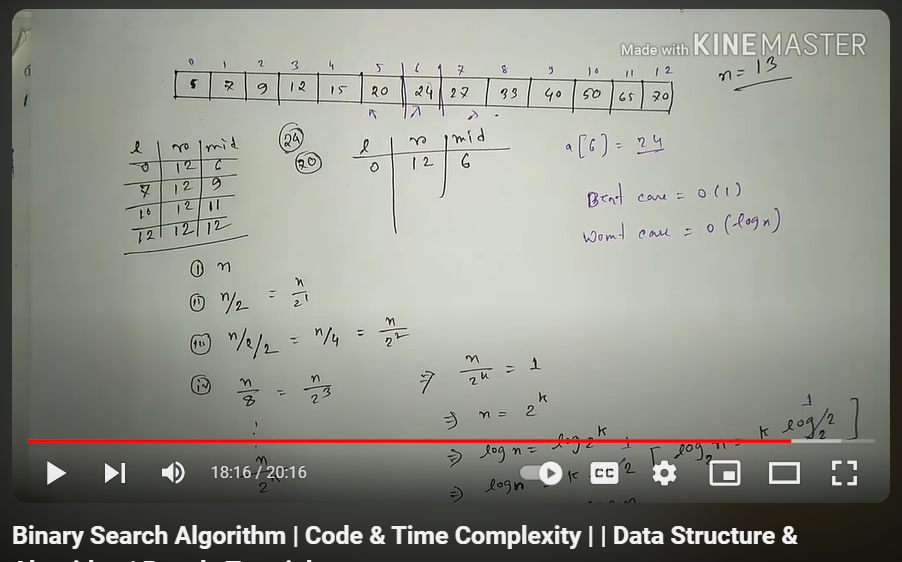 Made with KINEMASTER
0 1 2 3 4 5 6 7 8 9 10 11 12
5 7 9 12 15 20 24 27 33 40 50 65 70
n = 13
l r mid
0 12 6
7 12 9
10 12 11
12 12 12
24
20
l r mid
0 12 6
a[6] = 24
Best case = O(1)
Worst case = O(log n)
(i) n
(ii) n/2 = n/2¹
(iii) n/2/2 = n/4 = n/2²
(iv) n/8 = n/2³
⇒ n/2ᵏ = 1
⇒ n = 2ᵏ
⇒ log n = log 2ᵏ
⇒ log n
18:16 / 20:16
CC
Binary Search Algorithm | Code & Time Complexity | | Data Structure &